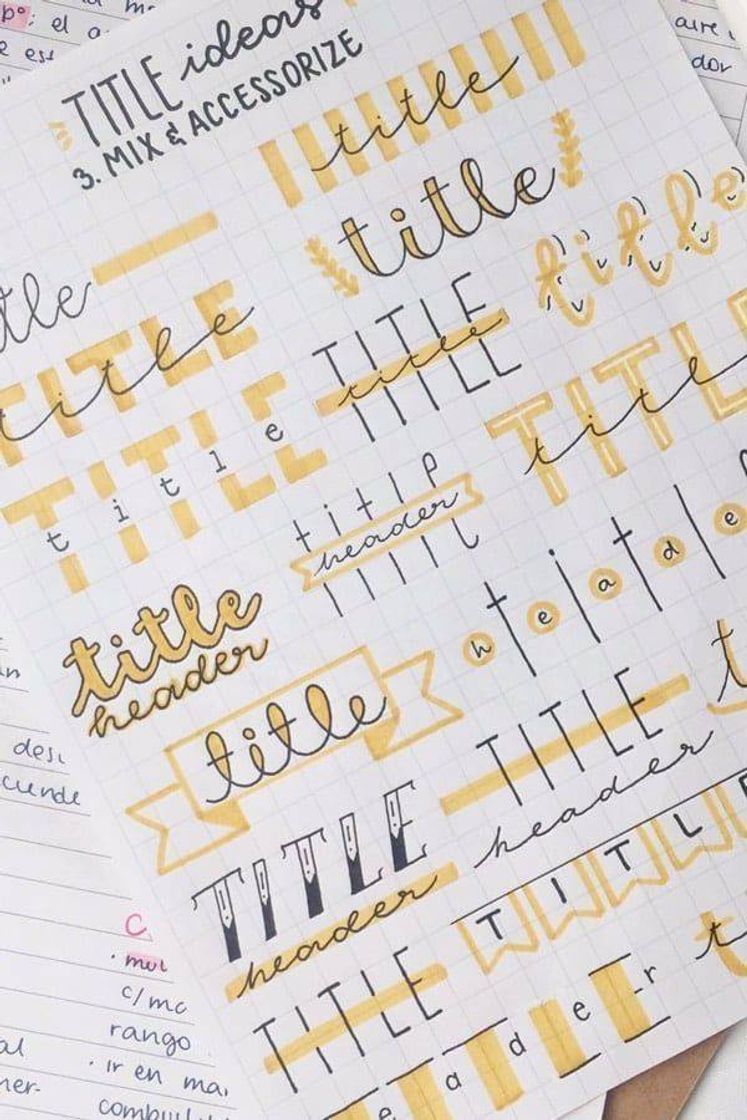 el a
TITLE ideas
3. MIX & ACCESSORIZE
aire
dor
title
title
tle
title
title
TITLE
title
TITLE
title
TITLE
title
TITL
titl
title
header
title
header
t i t l
h e a d e
title
TITLE
header
TITLE
header
TITL
TITLE
e a d e r
t
desc
ciende
C
· mul
c/mc
rango
al · ir en ma
ner-